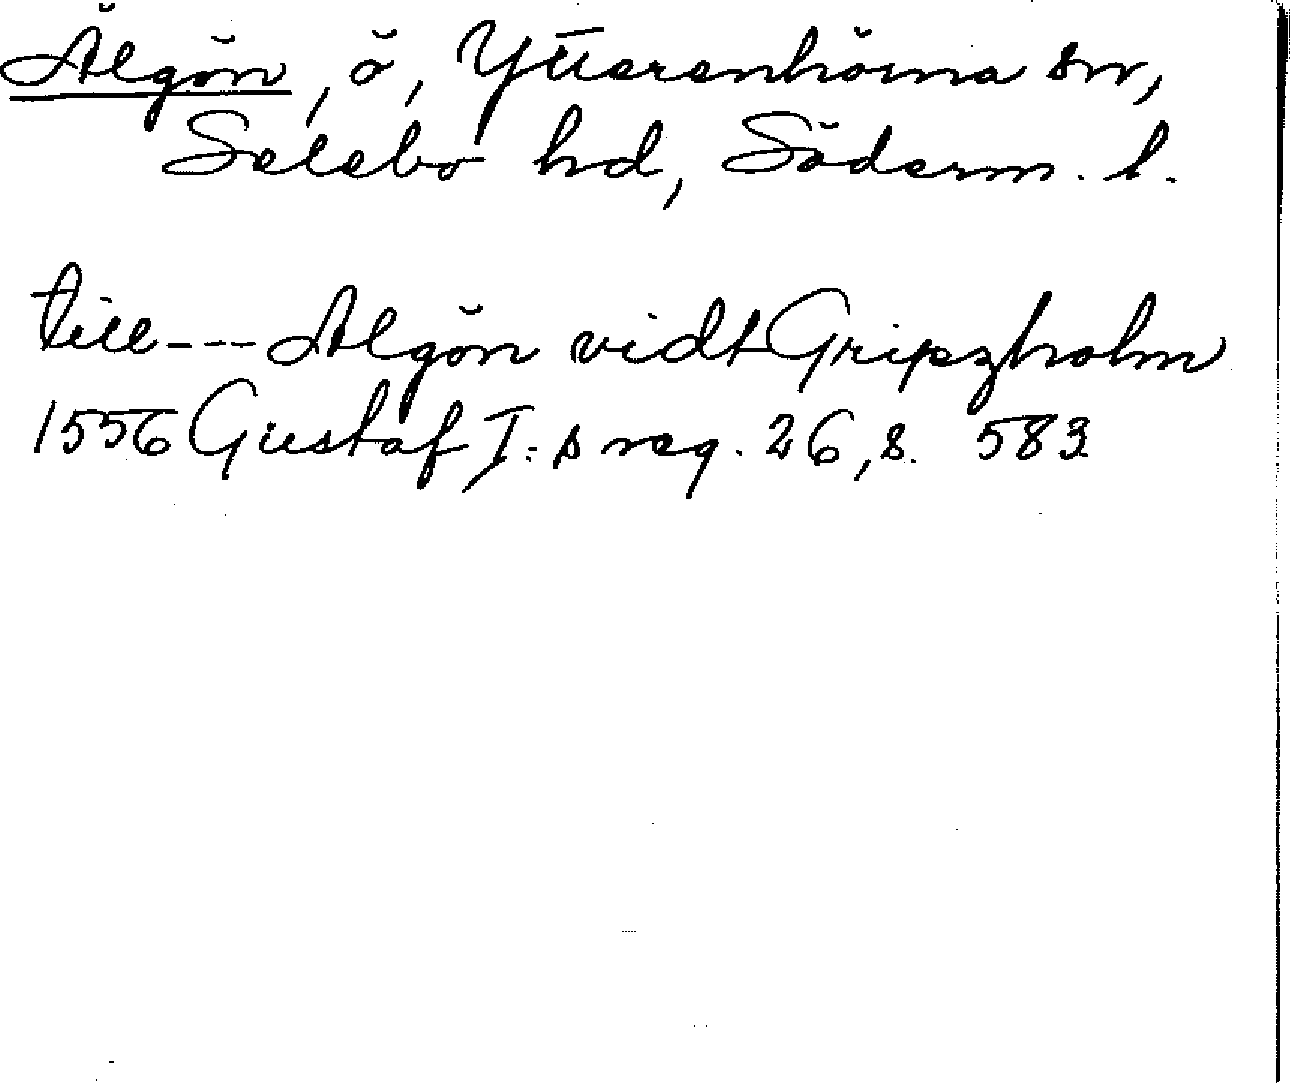 Älgön, ö, Ytterenhörna sn,
Selebo hd, Söderm. l.
till --- Algön vidt Gripzholm
1556 Gustaf I:s reg. 26, s. 583